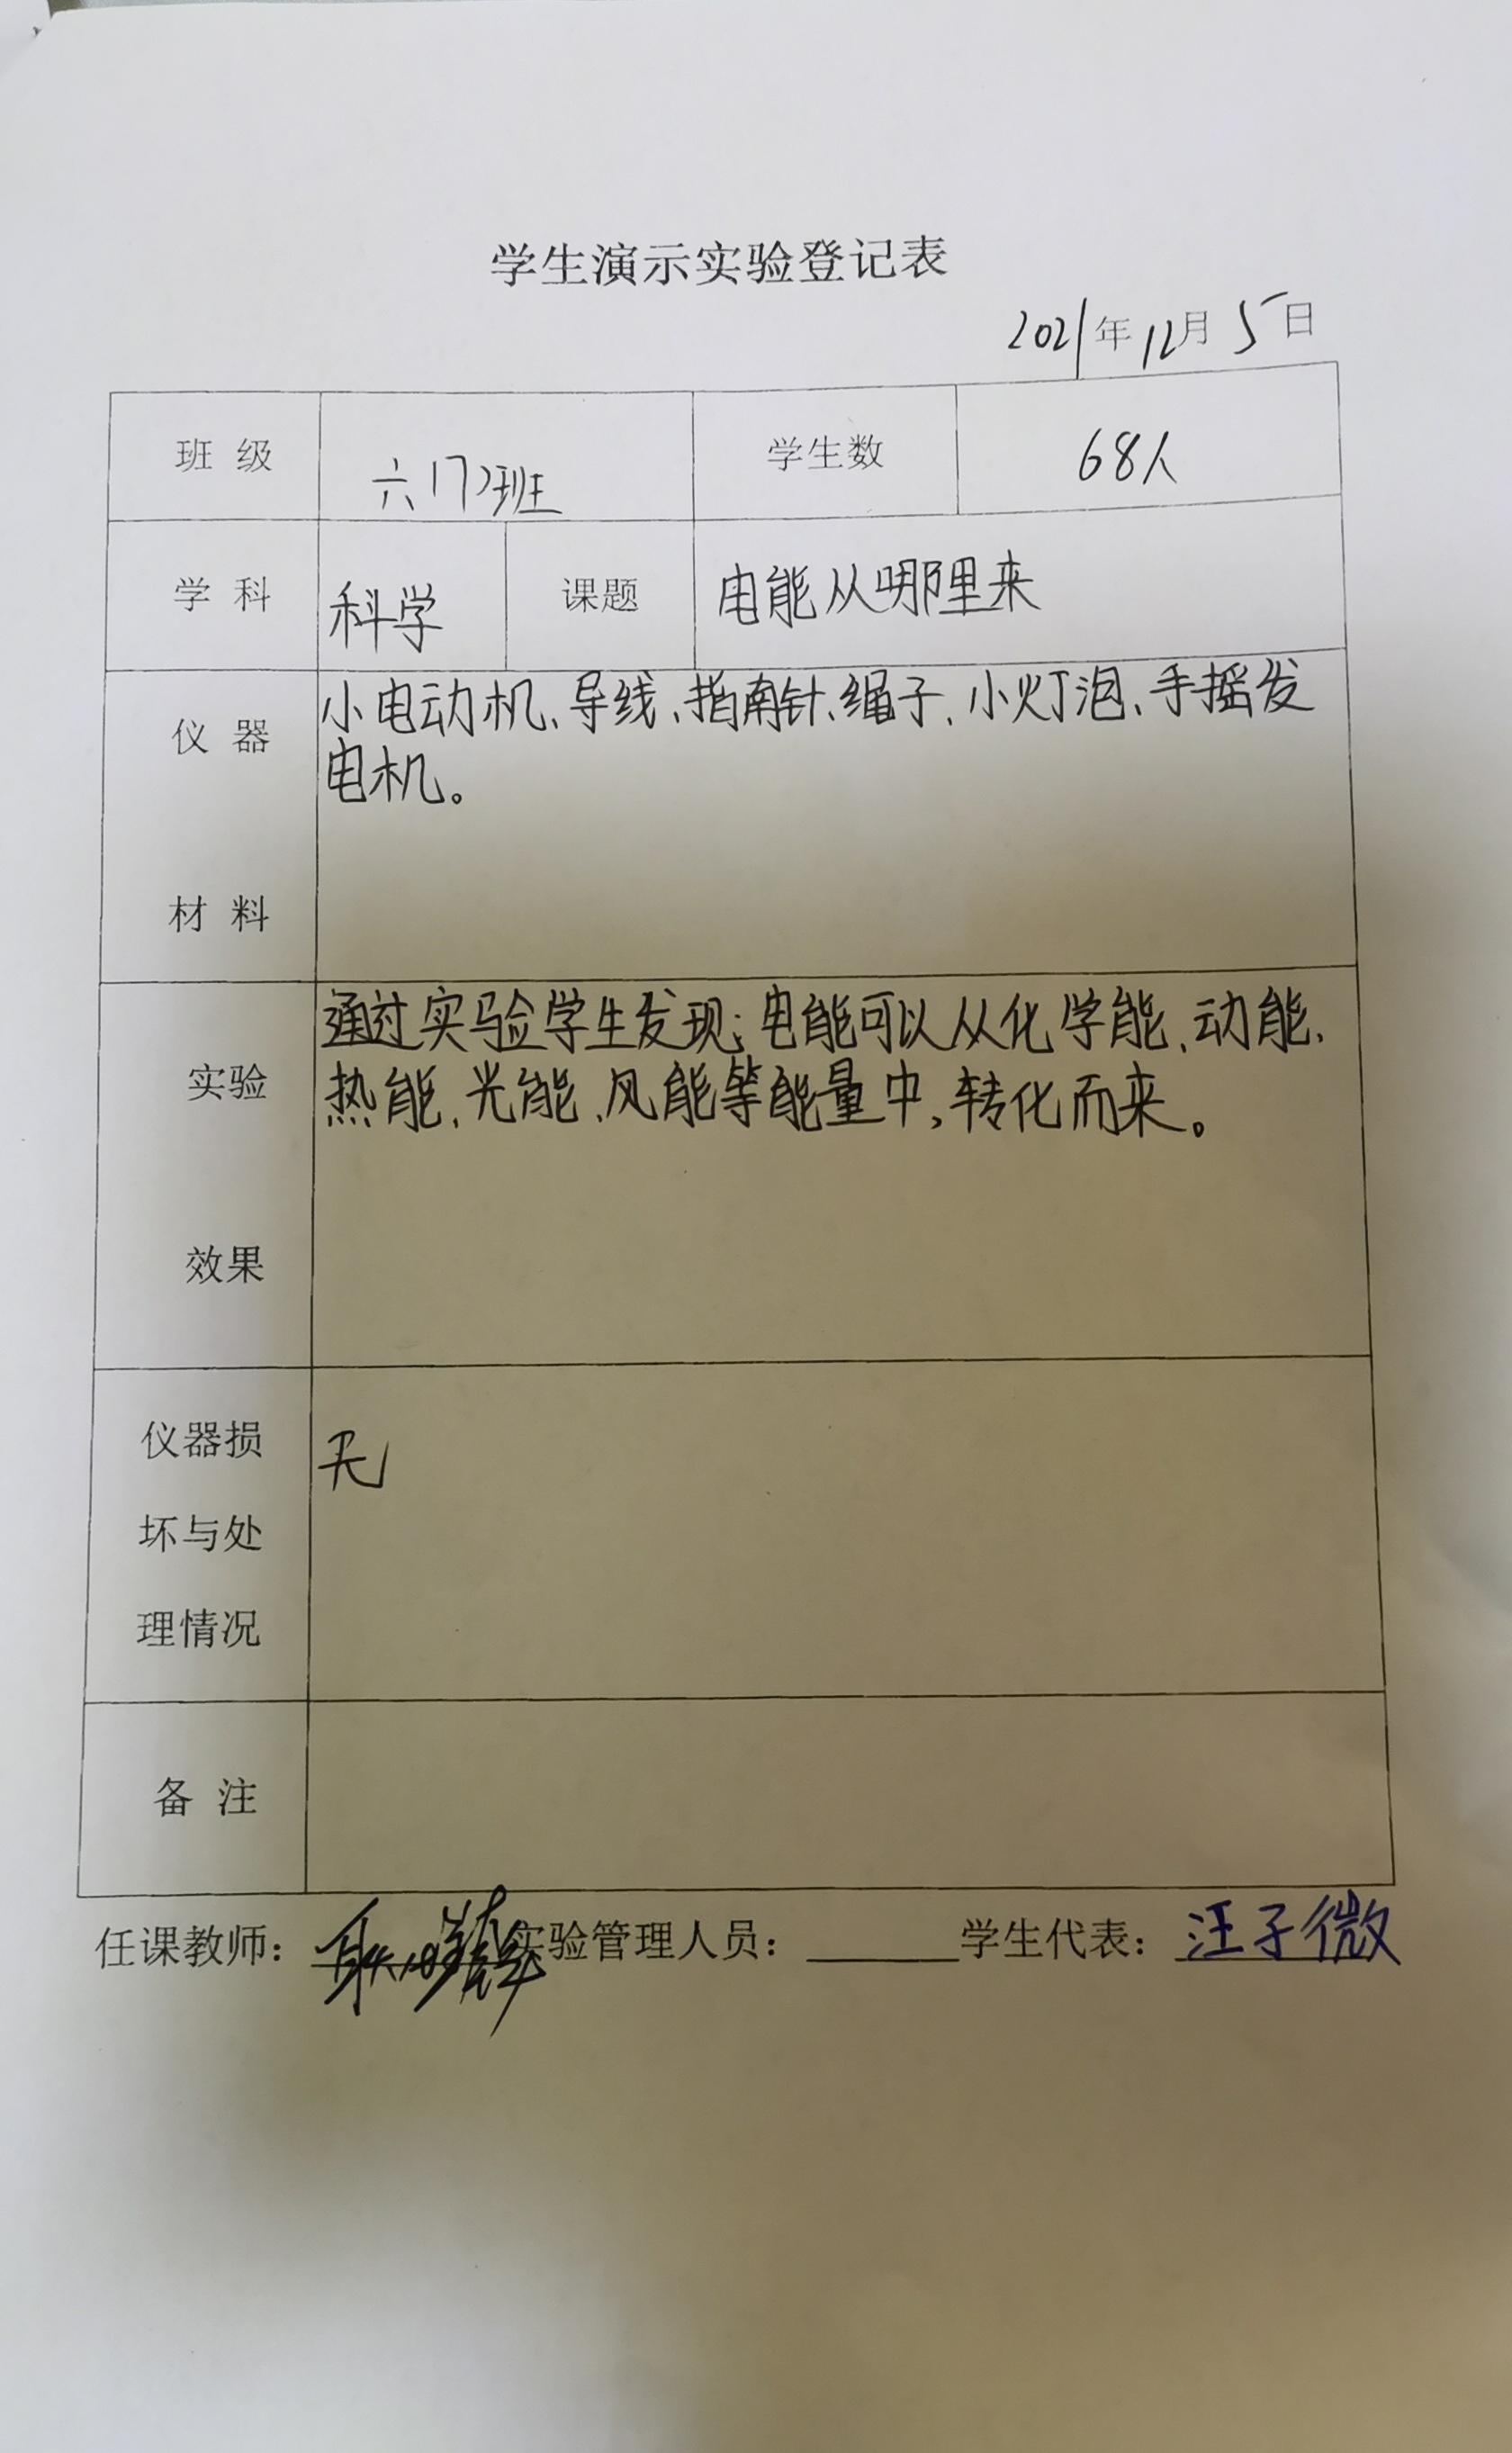 学生演示实验登记表
2021年12月5日
班 级 六(7)班 学生数 68人
学 科 科学 课题 电能从哪里来
仪 器
材 料
小电动机、导线、指南针、绳子、小灯泡、手摇发
电机。
实验
效果
通过实验学生发现:电能可以从化学能、动能、
热能、光能、风能等能量中,转化而来。
仪器损
坏与处
理情况
无
备 注
任课教师: 实验管理人员: 学生代表: 汪子微